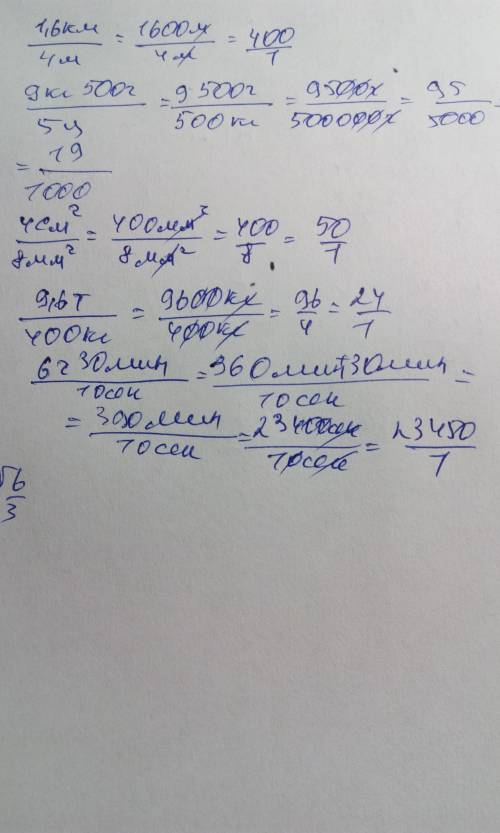 1,6км/4м = 1600м/4м = 400/1
9кг 500г/5ц = 9 500г/500кг = 9500г/500000г = 95/5000
= 19/1000
4см²/8мм² = 400мм²/8мм² = 400/8 = 50/1
9,6т/400кг = 9600кг/400кг = 96/4 = 24/1
6г 30мин/10сек = 360мин+30мин/10сек =
= 390мин/10сек = 23400сек/10сек = 23450/1
56/3